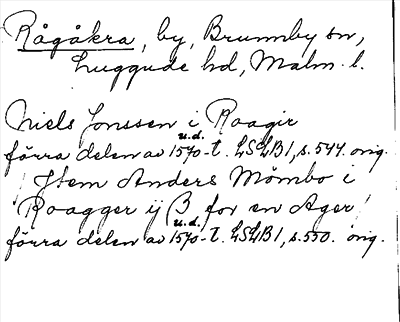 Rågåkra, by, Brunnby sn,
Luggude hd, Malm. l.
Niels Jonssen i Roagir
u.d.
förra delen av 1570-t. LSLB1, s. 544. orig.
Jtem Anders Mömbo i
Roagger ij β for en Ager/
u.d.
förra delen av 1570-t. LSLB1, s. 550. orig.